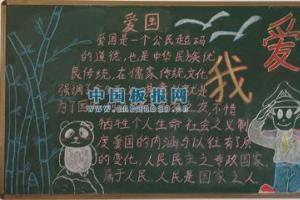 爱国
爱国是一个公民起码
的道德,也是中华民族优
民传统,在儒家传统文化
强调
中国板报网
为了国 不惜
牺牲个人生命 社会主义制
度爱国的内涵与以往有质
的变化,人民民主专政国家
属于人民 人民是国家主人
我
爱